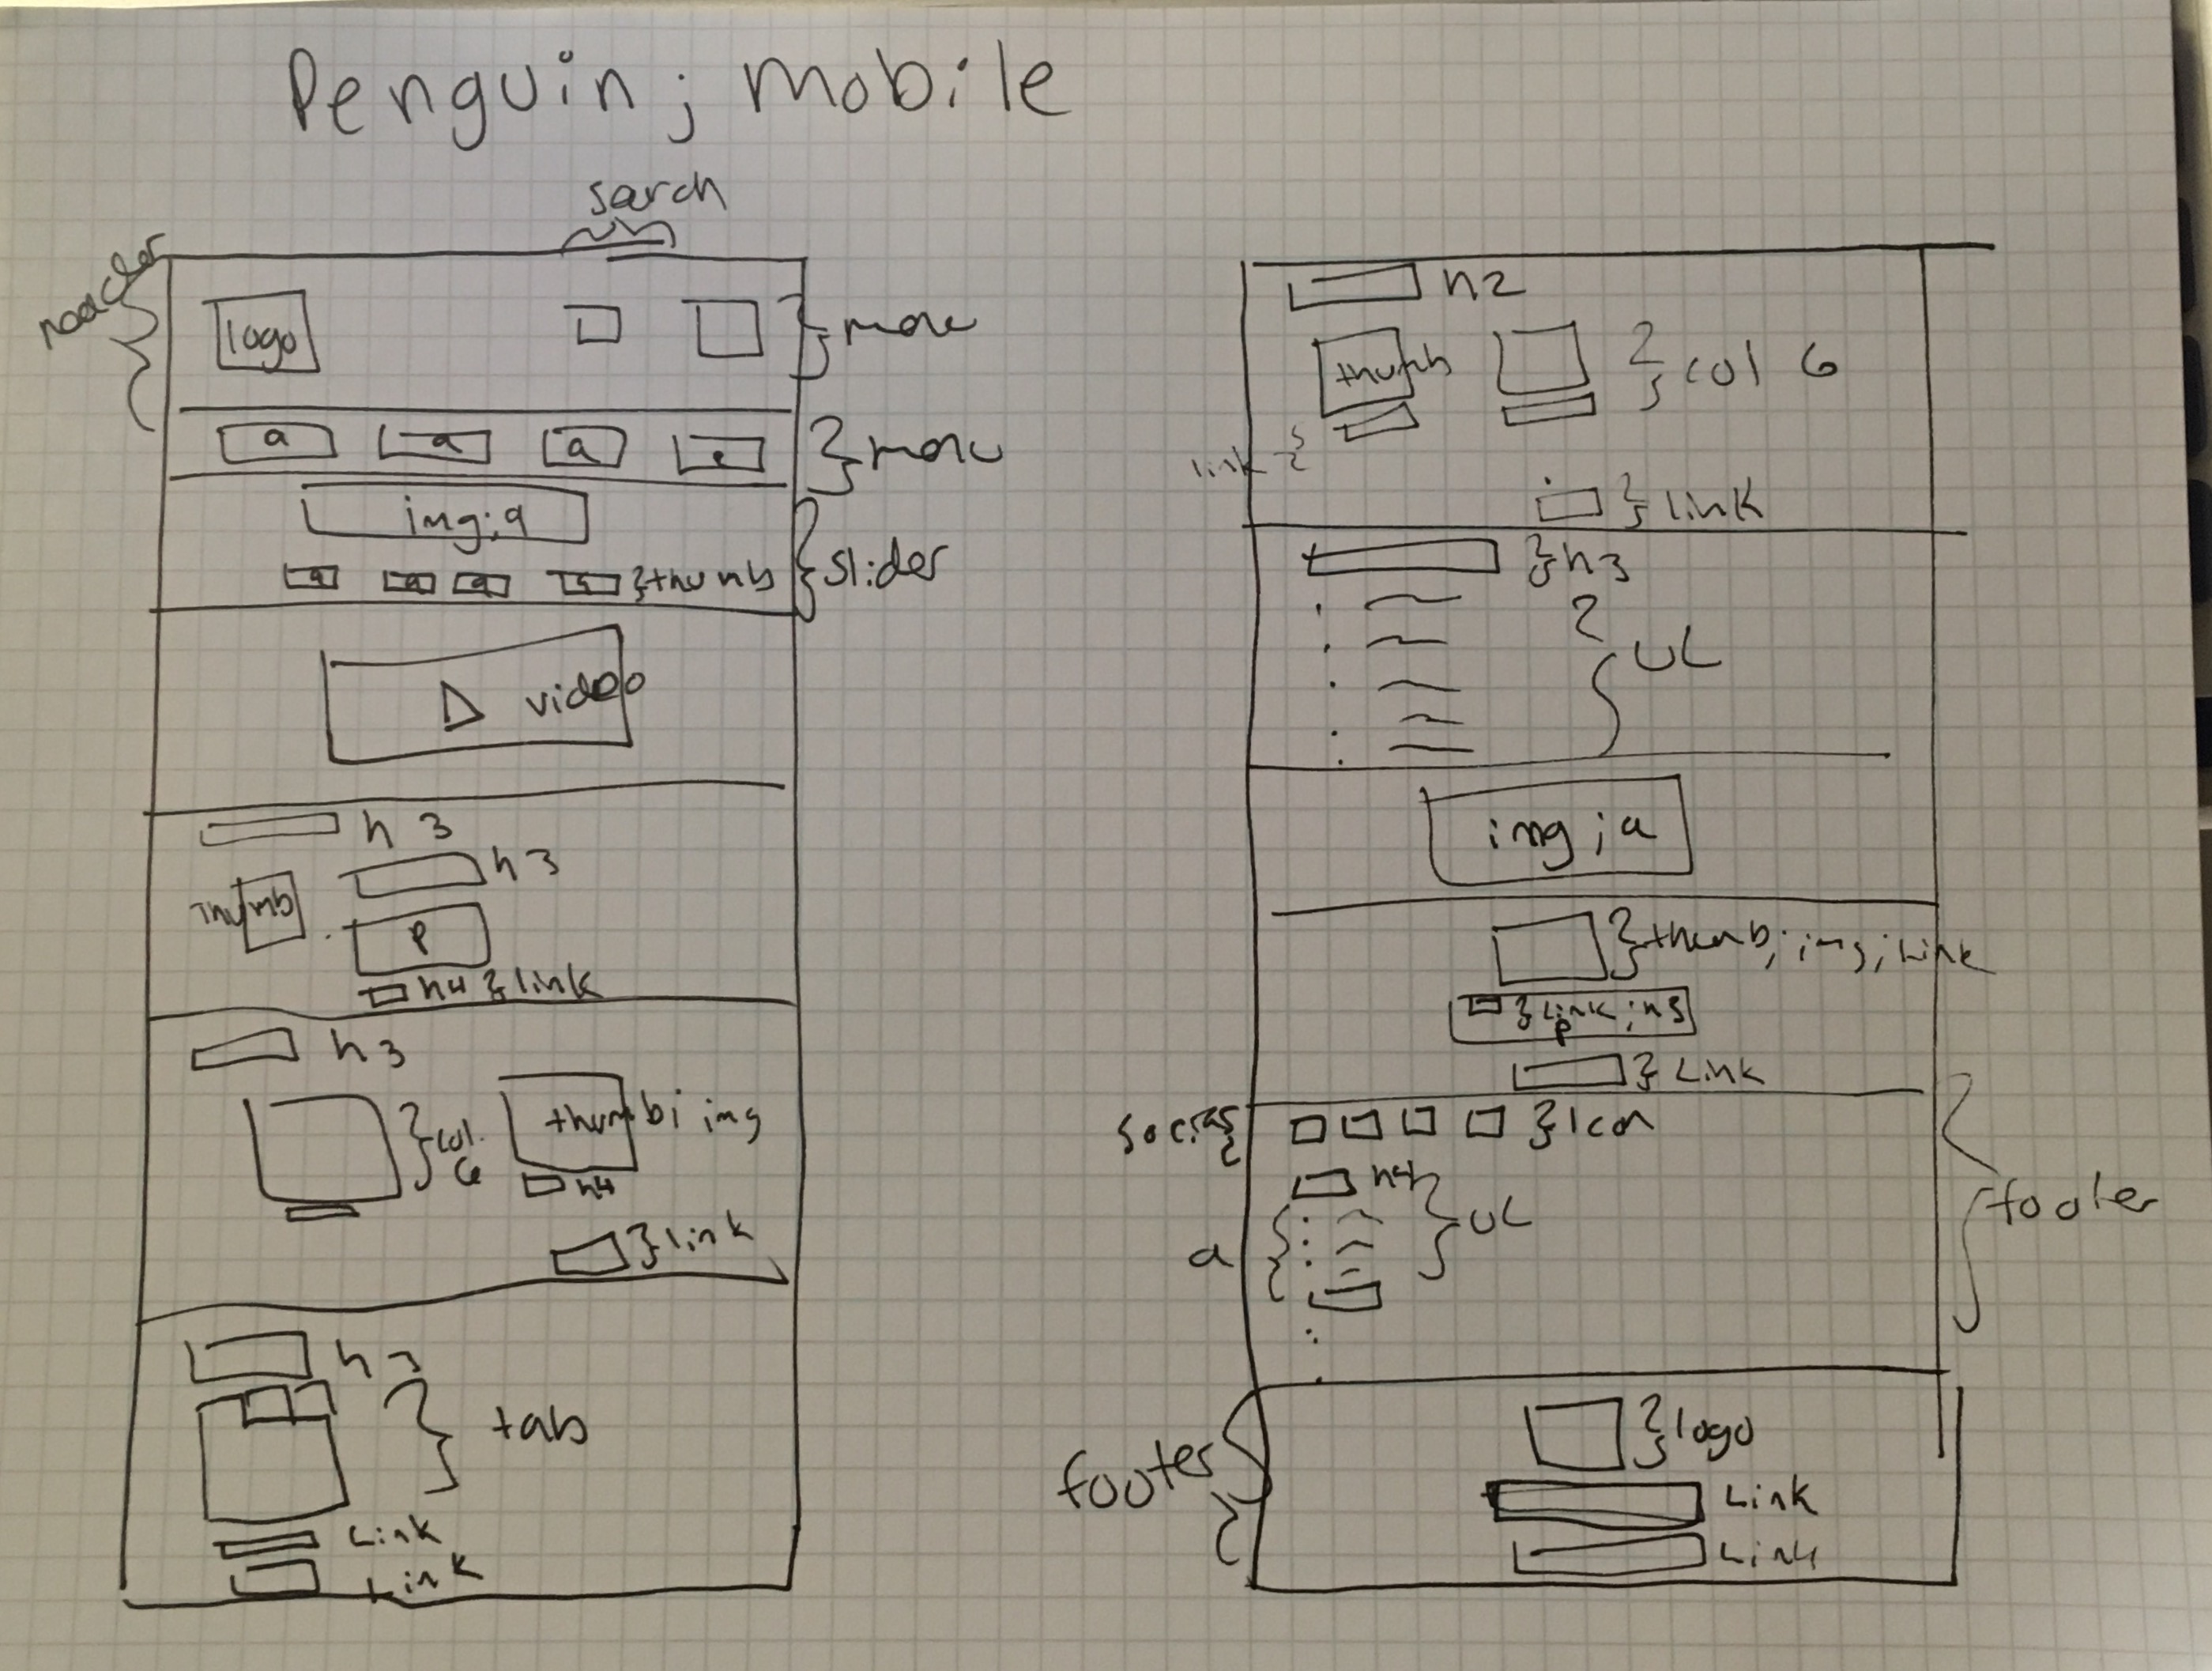 Penguin ; mobile
sarch
header
logo
menu
a a a
menu
img;a
thumb
slider
video
h3
h3
thumb
p
h4 link
h3
col 6
thumb; img
h4
link
h3
tab
Link
Link
h2
thumb
col 6
link
link
h3
UL
img;a
thumb; img; Link
Link; h3
p
Link
social
Icon
h4
UL
a
footer
footer
logo
Link
Link